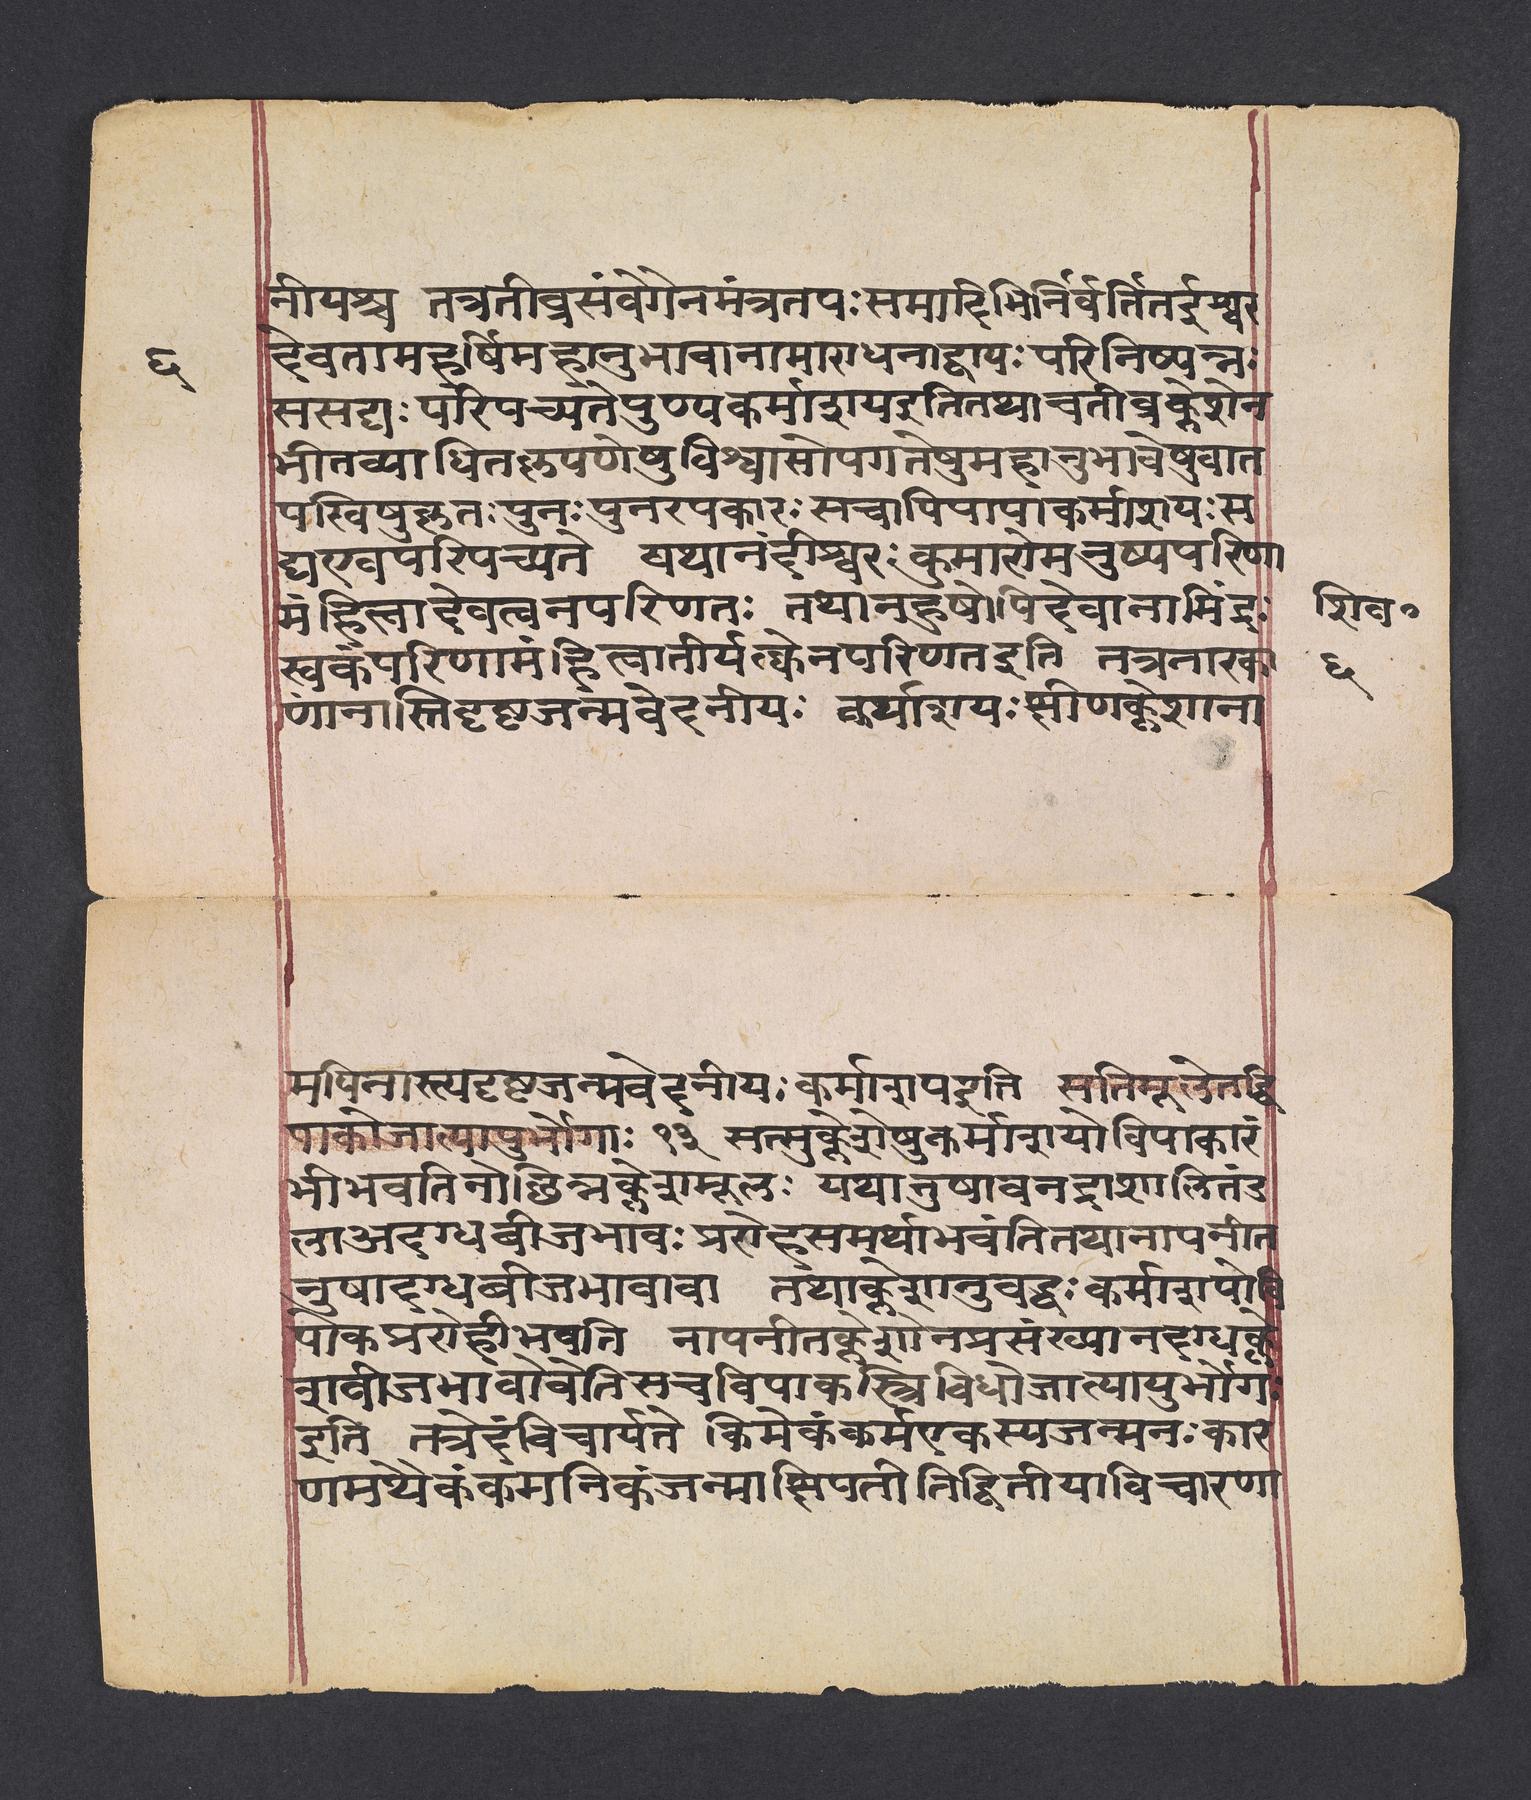 नीयश्च तत्रतीव्रसंवेगेनमंत्रतपःसमादिभिर्निर्वर्तितर्इश्वर
६
देवतामहर्षिमहानुभावानामाराधनाद्वायः परिनिष्पन्नः
ससद्यः परिपच्यते पुण्यकर्माशयइतितथाचतीव्रक्लेशेन
भीतव्याधितकृपणेषुविश्वासोपगतेषुमहानुभावेषुवात
पस्विषुकृतः पुनः पुनरपकारः सचापिपापाकर्माशयः स
द्यएवपरिपच्यते यथानंदीश्वरः कुमारोमनुष्यपरिणा
मंहित्वादेवत्वनपरिणतः तथानहुषोपिदेवानामिंद्रः
शिव॰
स्वकंपरिणामंहित्वातीर्यक्त्केनपरिणतइति तत्रनारका
६
णांनास्तिदृष्टजन्मवेदनीयः कर्याशयः क्षीणक्लेशाना
मपिनास्त्यदृष्टजन्मवेदनीयः कर्माशयइति सतिमूलेतद्वि
पाकोजात्यापुर्भोगाः १३ सत्सुक्लेशेषुकर्माशयोविपाकारं
भीभवतिनोछिन्नक्लेशमूलः यथातुषावनद्वाशालितंड
लाअदग्धबीजभावः प्ररोहसमर्थाभवंतितथानापनीत
तुषादग्धबीजभावावा तथाक्लेशानुवद्धः कर्माशयोवि
पाकप्ररोहीभवति नापनीतक्लेशोनप्रसंख्यानदग्धक्ले
शवीजभावोवेतिसचविपाकस्त्रिविधोजात्यायुर्भोगः
इति तत्रेदंविचार्यते किमेकंकर्मएकस्यजन्मनः कार
णमथैकंकमनिकंजन्माक्षिपतीतिद्वितीयाविचारणा